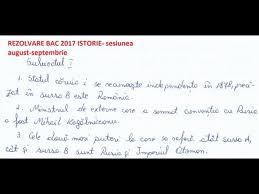 REZOLVARE BAC 2017 ISTORIE- sesiunea
august-septembrie
Subiectul I
1. Statul căruia i se recunoaște independența în 1878, preci-
zat în sursa B este România.
2. Ministrul de externe care a semnat convenția cu Rusia
a fost Mihail Kogălniceanu.
3. Cele două mari puteri la care se referă atât sursa A,
cât și sursa B sunt Rusia și Imperiul Otoman.